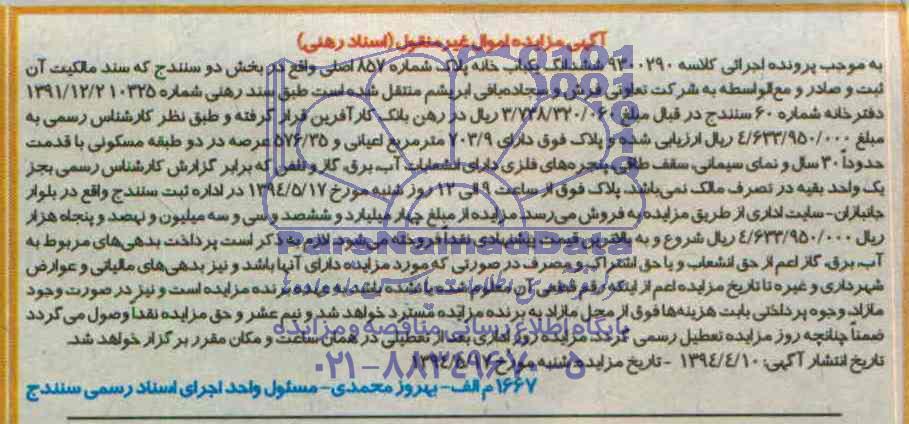 آگهی مزایده اموال غیر منقول (اسناد رهنی)
به موجب پرونده اجرائی کلاسه ۹۳۰۰۲۹۰ ششدانگ یکباب خانه پلاک شماره ۸۵۷ اصلی واقع در بخش دو سنندج که سند مالکیت آن
ثبت و صادر و مع‌الواسطه به شرکت تعاونی فرش و سجاده‌بافی ابریشم منتقل شده است طبق سند رهنی شماره ۱۰۳۲۵ ۱۳۹۱/۱۲/۲
دفترخانه شماره ۶۰ سنندج در قبال مبلغ ۳/۷۳۸/۳۲۰/۰۶۰ ریال در رهن بانک کارآفرین قرار گرفته و طبق نظر کارشناس رسمی به
مبلغ ٤/۶۳۳/۹۵۰/۰۰۰ ریال ارزیابی شده و پلاک فوق دارای ۲۰۳/۹ مترمربع اعیانی و ۵۷۶/۳۵ عرصه در دو طبقه مسکونی با قدمت
حدوداً ۳۰ سال و نمای سیمانی، سقف طاقی، پنجره‌های فلزی دارای انشعابات آب، برق، گاز و تلفن که برابر گزارش کارشناس رسمی بجز
یک واحد بقیه در تصرف مالک نمی‌باشد. پلاک فوق از ساعت ۹ الی ۱۲ روز شنبه مورخ ۱۳۹٤/۵/۱۷ در اداره ثبت سنندج واقع در بلوار
جانبازان - سایت اداری از طریق مزایده به فروش می‌رسد. مزایده از مبلغ چهار میلیارد و ششصد و سی و سه میلیون و نهصد و پنجاه هزار
ریال ٤/۶۳۳/۹۵۰/۰۰۰ ریال شروع و به بالاترین قیمت پیشنهادی نقداً فروخته می‌شود. لازم به ذکر است پرداخت بدهی‌های مربوط به
آب، برق، گاز اعم از حق انشعاب و یا حق اشتراک و مصرف در صورتی که مورد مزایده دارای آنها باشد و نیز بدهی‌های مالیاتی و عوارض
شهرداری و غیره تا تاریخ مزایده اعم از اینکه رقم قطعی آن معلوم شده یا نشده باشد به عهده برنده مزایده است و نیز در صورت وجود
مازاد، وجوه پرداختی بابت هزینه‌ها فوق از محل مازاد به برنده مزایده مسترد خواهد شد و نیم عشر و حق مزایده نقداً وصول می گردد
ضمناً چنانچه روز مزایده تعطیل رسمی گردد، مزایده روز اداری بعد از تعطیلی در همان ساعت و مکان مقرر برگزار خواهد شد.
تاریخ انتشار آگهی: ۱۳۹٤/٤/۱۰ - تاریخ مزایده: شنبه مورخ ۱۳۹٤/۵/۱۷
۱۶۶۷ م الف - بهروز محمدی - مسئول واحد اجرای اسناد رسمی سنندج
ParsNamadData
پایگاه اطلاع رسانی مناقصه و مزایده
۰۲۱-۸۸۳۴۹۶۷۰-۵